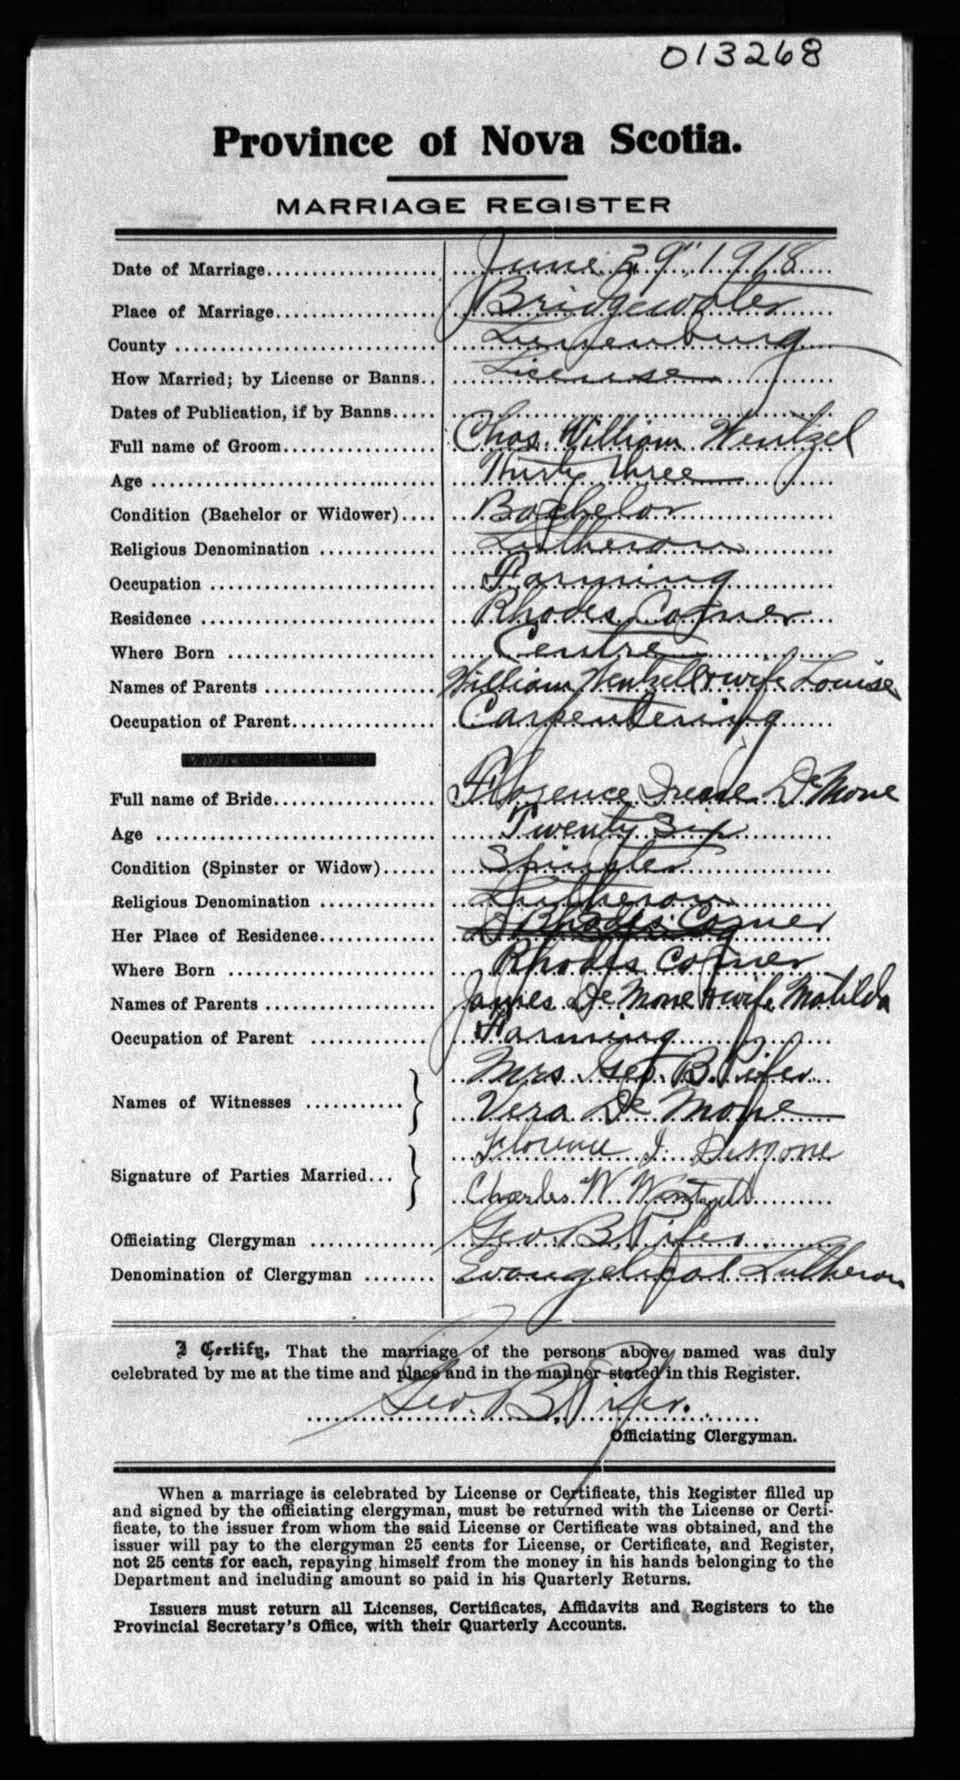 013268
Province of Nova Scotia.
MARRIAGE REGISTER
Date of Marriage.................... June 29" 1918
Place of Marriage................... Bridgewater
County ............................. Lunenburg
How Married; by License or Banns.. License
Dates of Publication, if by Banns.....
Full name of Groom.................. Chas. William Wentzel
Age ................................ Thirty three
Condition (Bachelor or Widower).... Bachelor
Religious Denomination ............. Lutheran
Occupation ......................... Farming
Residence .......................... Rhodes Corner
Where Born ......................... Centre
Names of Parents ................... William Wentzell & wife Louise
Occupation of Parent................ Carpentering
Full name of Bride.................. Florence Irene DeMone
Age ................................ Twenty Six
Condition (Spinster or Widow)...... Spinster
Religious Denomination ............. Lutheran
Her Place of Residence.............. Rhodes Corner
Where Born ......................... Rhodes Corner
Names of Parents ................... James DeMone & wife Matilda
Occupation of Parent ............... Farming
Mrs. Geo. B. Pifer
Names of Witnesses ...........}
Vera DeMone
Florence I. DeMone
Signature of Parties Married...}
Charles W Wentzell
Officiating Clergyman .............. Geo. B. Pifer
Denomination of Clergyman ........ Evangelical Lutheran
I Certify, That the marriage of the persons above named was duly
celebrated by me at the time and place and in the manner stated in this Register.
Geo. B. Pifer.
Officiating Clergyman.
When a marriage is celebrated by License or Certificate, this Register filled up
and signed by the officiating clergyman, must be returned with the License or Certi-
ficate, to the issuer from whom the said License or Certificate was obtained, and the
issuer will pay to the clergyman 25 cents for License, or Certificate, and Register,
not 25 cents for each, repaying himself from the money in his hands belonging to the
Department and including amount so paid in his Quarterly Returns.
Issuers must return all Licenses, Certificates, Affidavits and Registers to the
Provincial Secretary's Office, with their Quarterly Accounts.